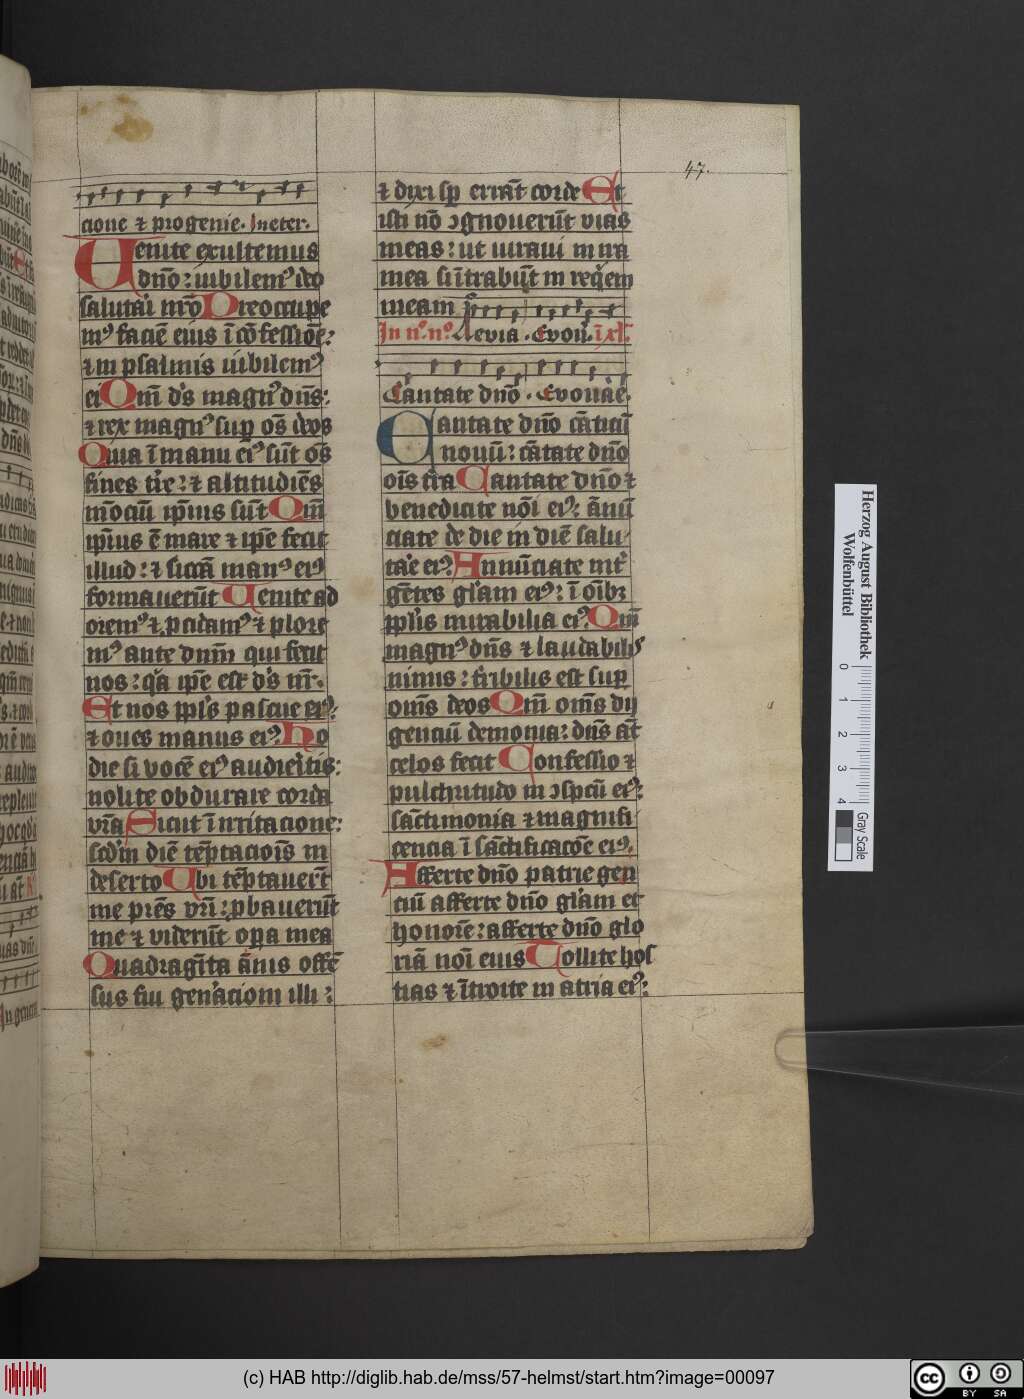 47.
cione ⁊ progenie. In eter.
Uenite exultemus
dn̄o: iubilemꝰ deo
salutari nr̄o Preoccupe
mꝰ faciē eius ī cōfessiōe:
⁊ in psalmis iubilemꝰ
ei Qm̄ ds̄ magnꝰ dn̄s:
⁊ rex magnꝰ suꝑ os̄ deos
Quia ī manu eiꝰ sūt os̄
fines tr̄e: ⁊ altitudiēs
mōciū ip̄ius sūt Qm̄
ip̄ius ē mare ⁊ ip̄e fecit
illud: ⁊ siccā manꝰ eiꝰ
formauerūt Uenite ad
oremꝰ ⁊ ꝓcidamꝰ ⁊ plore
mꝰ ante dnm̄ qui fecit
nos: qͣ ip̄e est ds̄ nr̄.
Et nos ppl̄s pascue eiꝰ:
⁊ oues manus eiꝰ Ho
die si vocē eiꝰ audieritis:
nolite obdurare corda
vr̄a Sicut ī irritacione:
scd̄m diē tēptacioīs in
deserto Ubi tēptauerūt
me prēs vr̄i: ꝓbauerūt
me ⁊ viderūt oꝑa mea
Quadragīta ānis offē
sus fui gen̄acioni illi:
⁊ dixi sꝑ errāt corde Et
isti nō ꝯgnouerūt vias
meas: ut iuraui in ira
mea si ītrabūt in reqͥem
meam
In nͦ. nͦ. Aeuia. Euou.
Cantate dn̄o. Euouae.
Cantate dn̄o cāticū
nouū: cātate dn̄o
oīs tr̄a Cantate dn̄o ⁊
benedicite nōi eiꝰ: ānū
ciate de die in diē salu
tar̄e eiꝰ Annūciate int̄
gētes glām eiꝰ: ī oībꝫ
ppl̄is mirabilia eiꝰ Qm̄
magnꝰ dn̄s ⁊ laudabilis
nimis: t̄ribilis est suꝑ
om̄s deos Qm̄ om̄s dij
genciū demonia: dn̄s āt
celos fecit Confessio ⁊
pulchritudo in ꝯspcū eiꝰ:
sāctimonia ⁊ magnifi
cencia ī sāctificacōe eiꝰ.
Afferte dn̄o patrie gen
ciū afferte dn̄o glām et
honorē: afferte dn̄o glo
riā noī eius Tollite hos
tias ⁊ ītroite in atria eiꝰ:
Herzog August Bibliothek
Wolfenbüttel
0 1 2 3 4
Gray Scale
(c) HAB http://diglib.hab.de/mss/57-helmst/start.htm?image=00097
CC BY SA